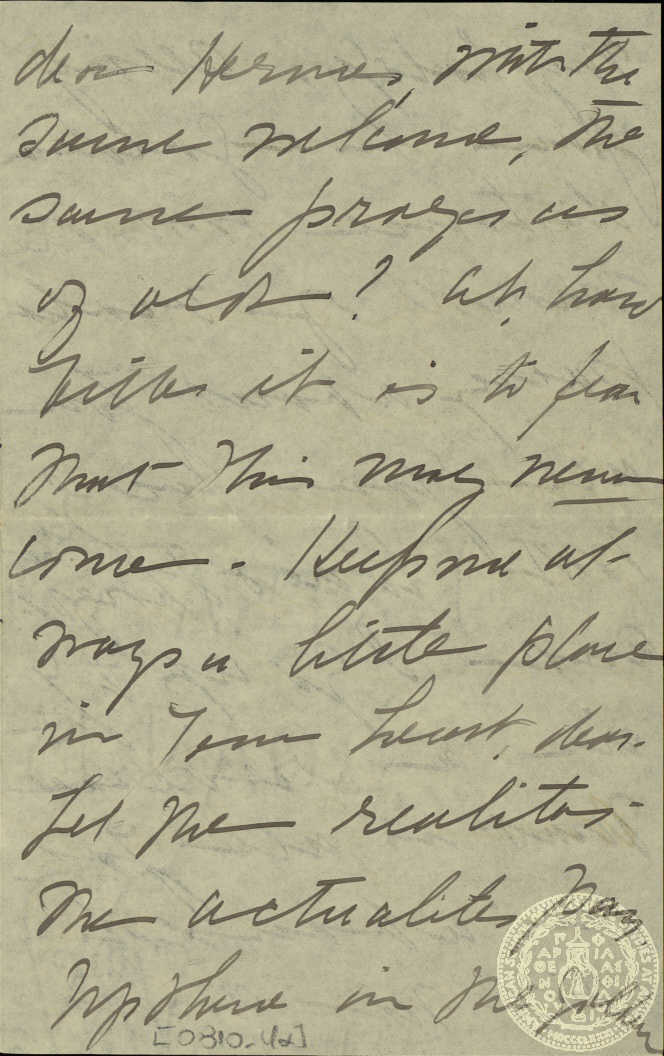 dear Hermes, with the
same welcome, the
same prayers as
of old? Ah, how
bitter it is to fear
that this may never
come. Keep me al-
ways a little place
in your heart, dear.
Let the realitas-
the actualites pay.
Up there in the
[0310-42]